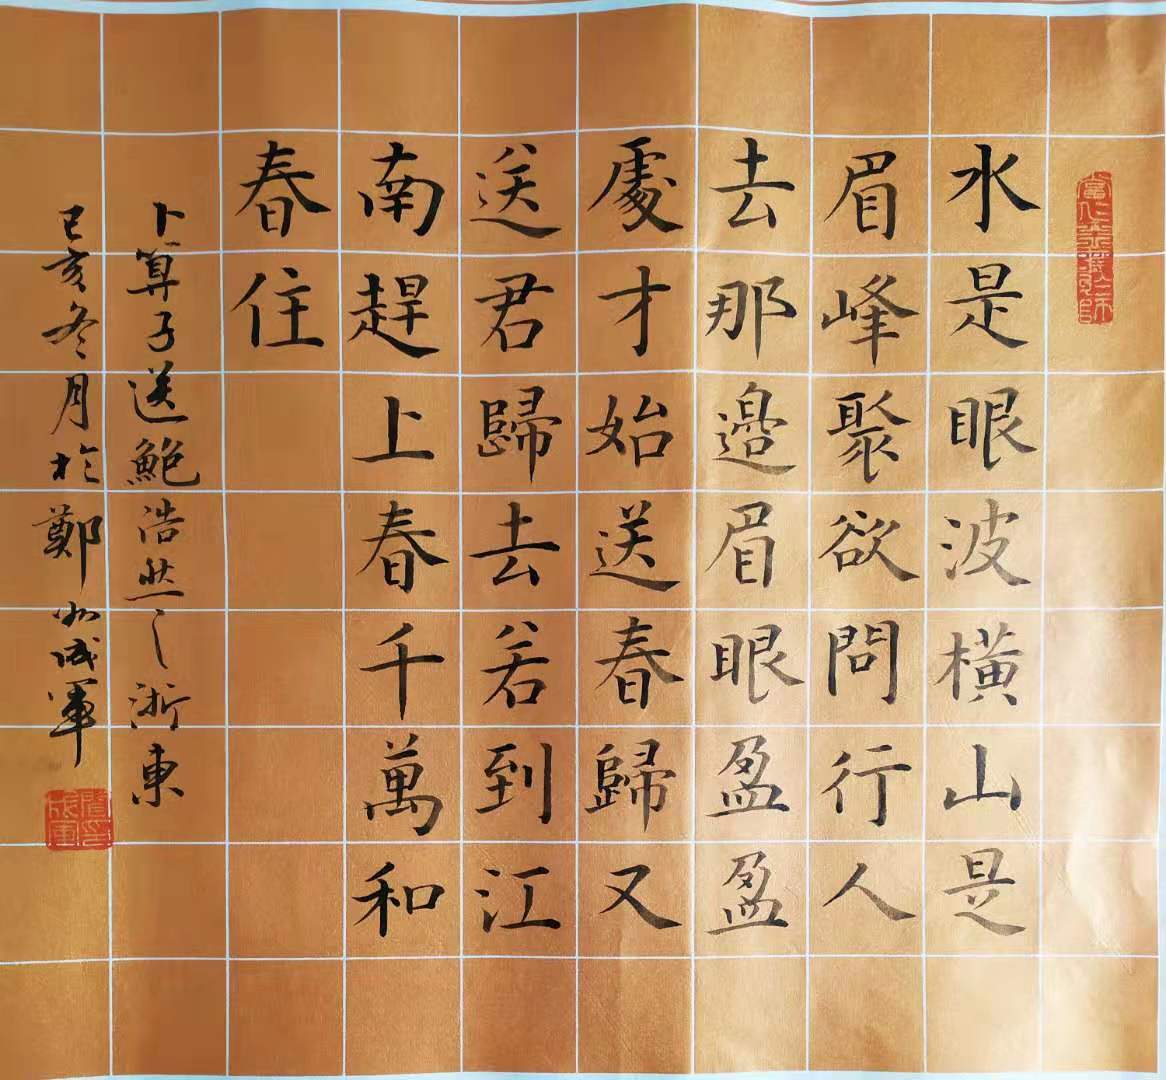 水是眼波橫山是
眉峰聚欲問行人
去那邊眉眼盈盈
處才始送春歸又
送君歸去若到江
南趕上春千萬和
春住
卜算子送鮑浩然之浙東
己亥冬月於鄭州成軍